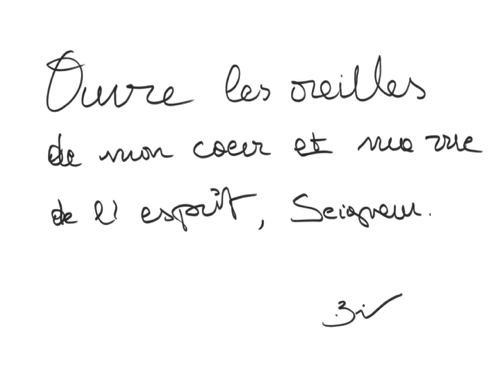 Ouvre les oreilles
de mon coeur et ma vue
de l'esprit, Seigneur.